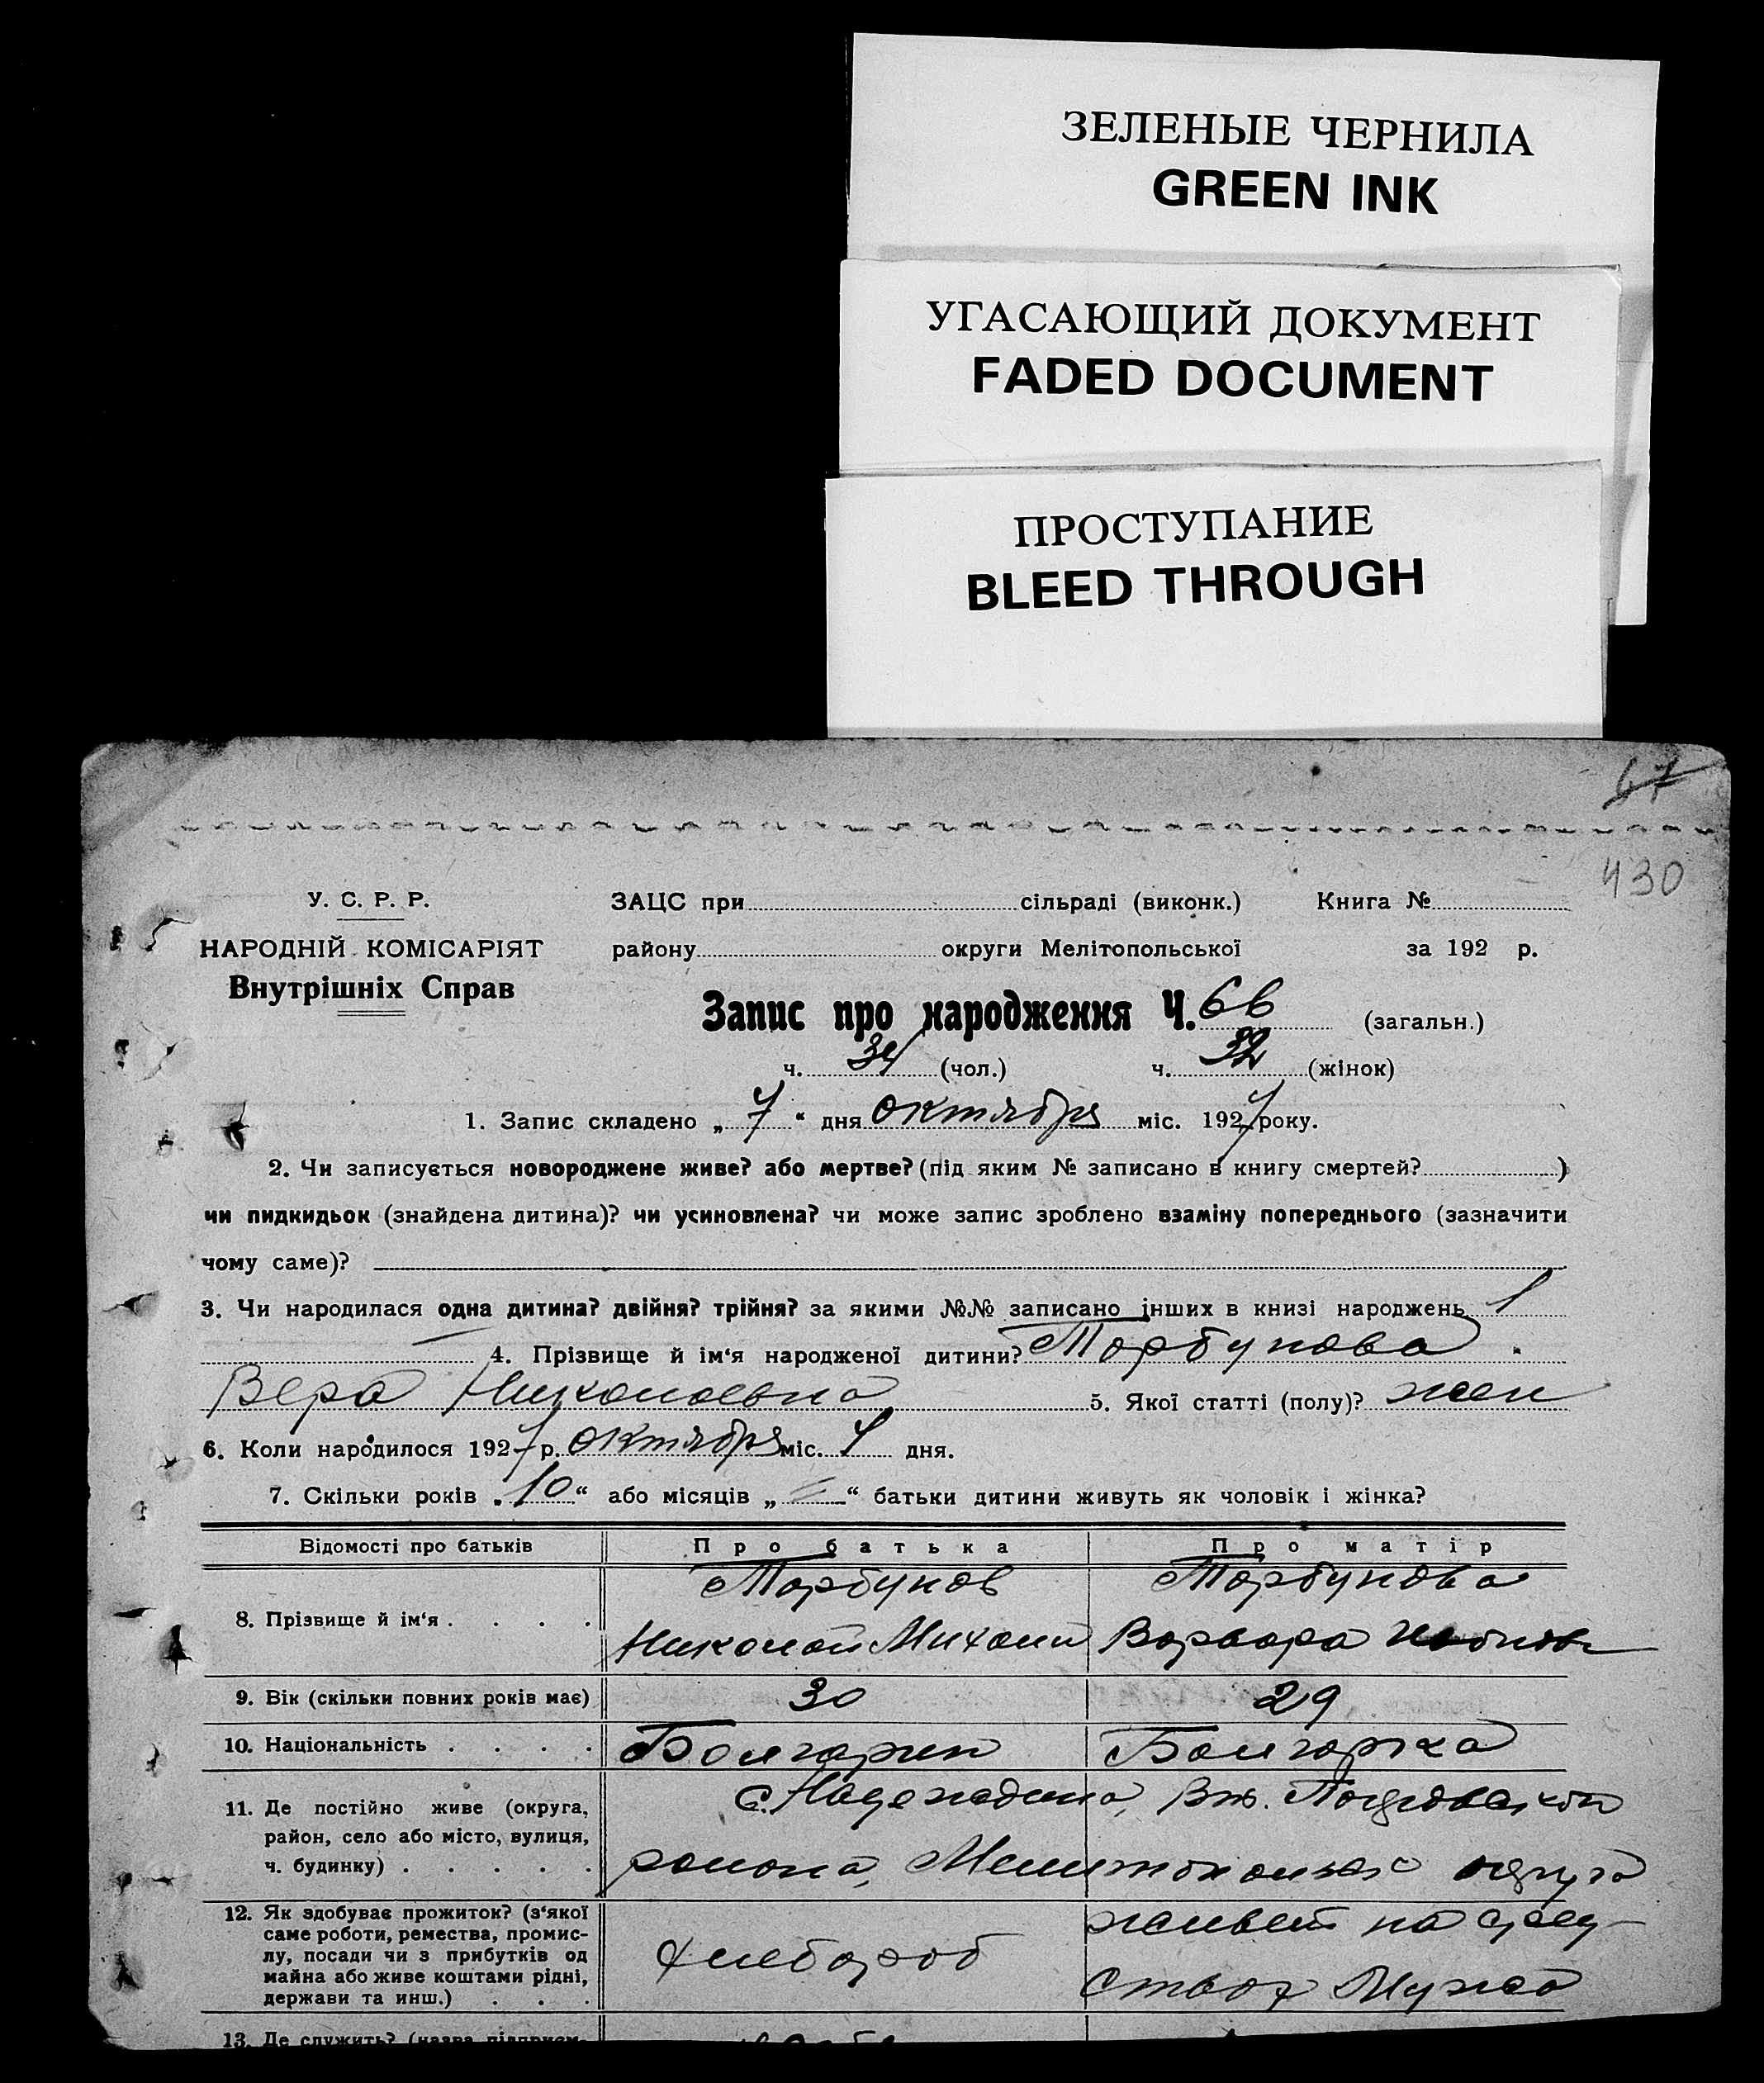 ЗЕЛЕНЫЕ ЧЕРНИЛА
GREEN INK
УГАСАЮЩИЙ ДОКУМЕНТ
FADED DOCUMENT
ПРОСТУПАНИЕ
BLEED THROUGH
67
430
У. С. Р. Р.
НАРОДНІЙ КОМІСАРІЯТ
Внутрішніх Справ
ЗАЦС при сільраді (виконк.) Книга №
району округи Мелітопольської за 192 р.
Запис про народження Ч. 66 (загальн.)
ч. 34 (чол.) ч. 32 (жінок)
1. Запис складено „ 7 “ дня октября міс. 1927 року.
2. Чи записується новороджене живе? або мертве? (під яким № записано в книгу смертей? )
чи пидкидьок (знайдена дитина)? чи усиновлена? чи може запис зроблено взаміну попереднього (зазначити
чому саме)?
3. Чи народилася одна дитина? двійня? трійня? за якими №№ записано інших в книзі народжень 1
— 4. Прізвище й ім‘я народженої дитини? Торбунова
Вера Николаевна 5. Якої статті (полу)? жен
6. Коли народилося 1927 р. октября міс. 1 дня.
7. Скільки років „ 10 “ або місяців „ = “ батьки дитини живуть як чоловік і жінка?
Відомості про батьків Про батька Про матір
8. Прізвище й ім‘я . . . . Торбунов Торбунова
Николай Михаил Варвара
9. Вік (скільки повних років має) 30 29
10. Національність . . . . Болгарин Болгарка
11. Де постійно живе (округа,
район, село або місто, вулиця,
ч. будинку) . . . . .
с. Надеждина,
района, Мелитопольск округа
12. Як здобуває прожиток? (з‘якої
саме роботи, ремества, промис-
лу, посади чи з прибутків од
майна або живе коштами рідні,
держави та инш.) . . .
хлебороб
живет на сред-
ства Мужа
13. Де служить? (назва підприєм-